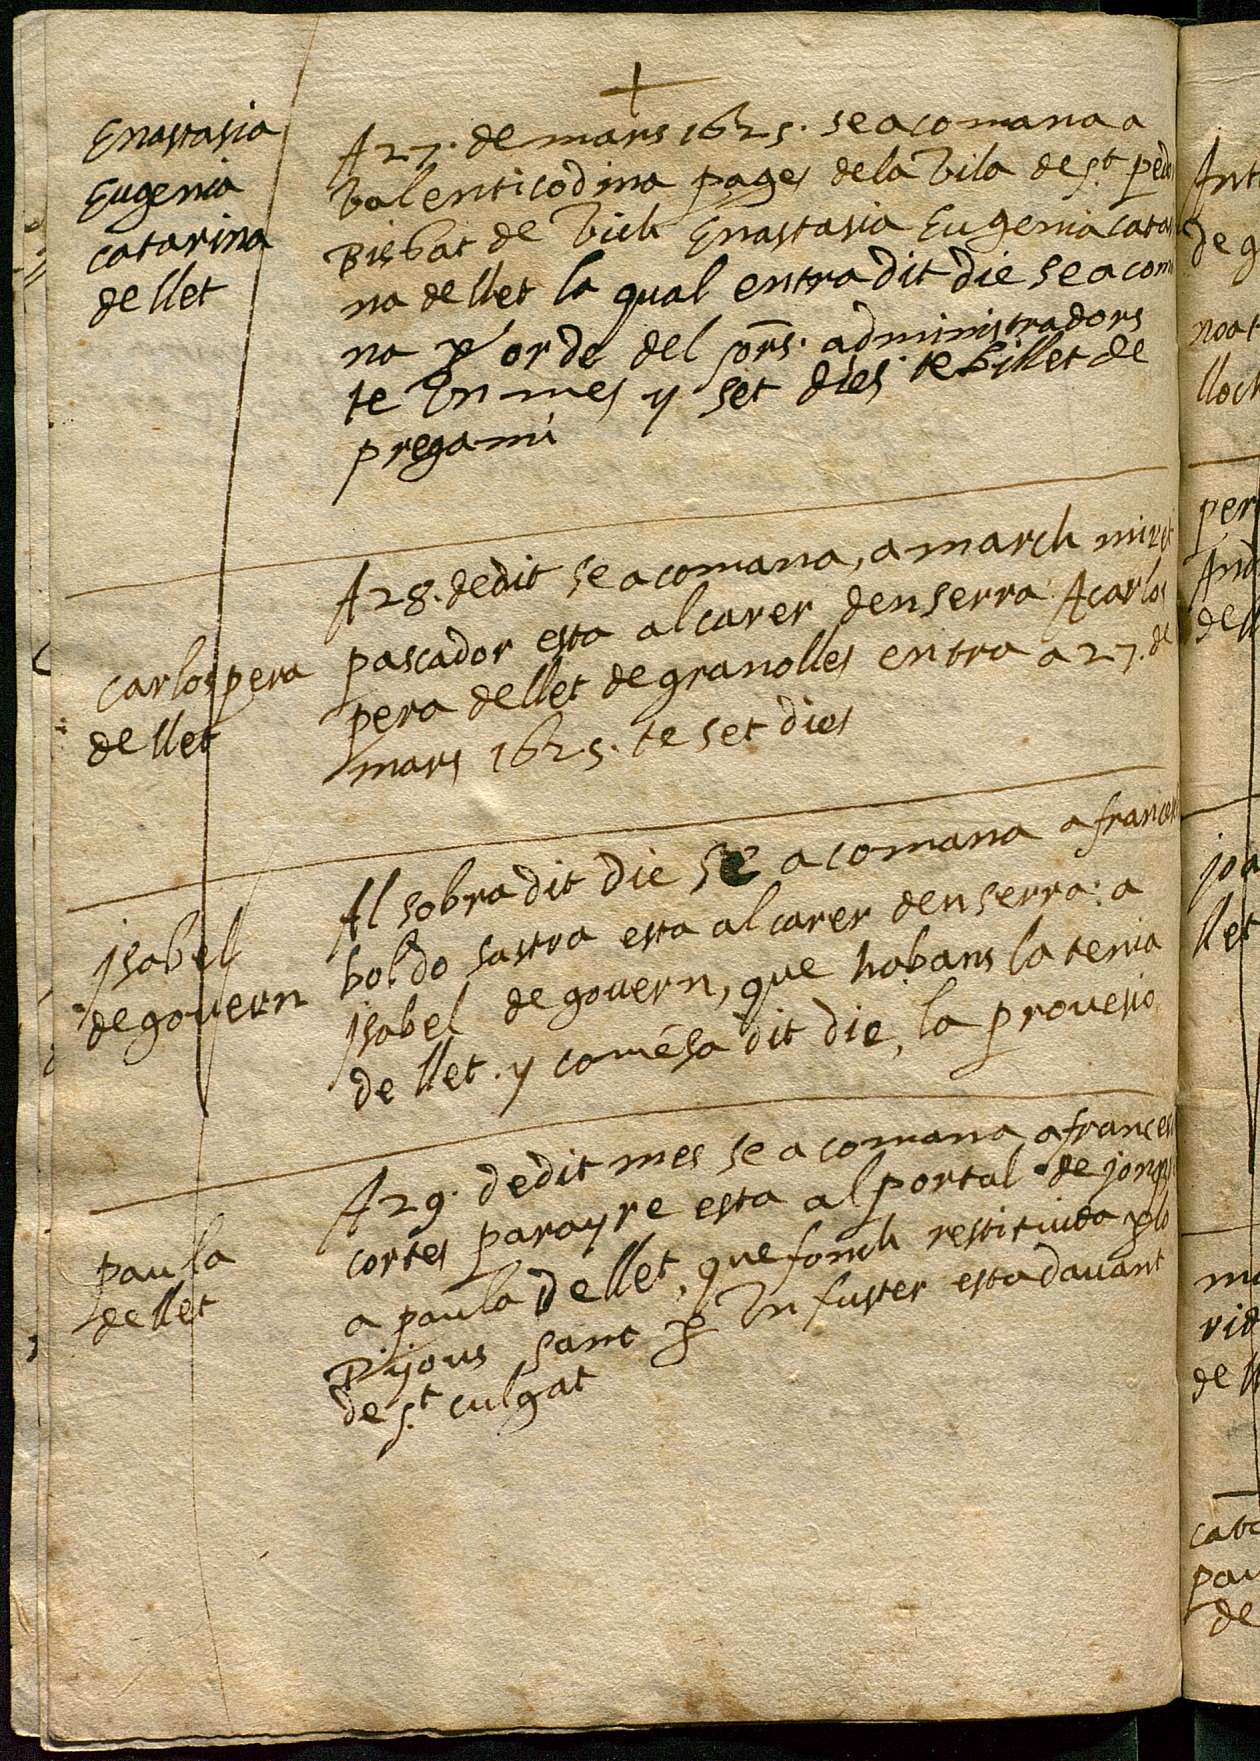 Enastasia
Eugenia
catarina
de llet
A 27. de mars 1625. se acomana a
Valenti codina pages de la Vila de st. pedo
Bisbat de Vich Enastasia Eugenia cata
na de llet la qual entra dit die se acom
na p orde del sors. administradors
te Un mes y set dies te billet de
pregami
carlos pera
de llet
A 28. de dit se acomana, a march miret
pascador esta al carer den serra: A carlos
pera de llet de granolles entra a 27. de
mars 1625. te set dies
jsabel
de govern
Al sobra dit die se acomana a francesc
boldo sastra esta al carer den serra: a
jsabel de govern, que habans la tenia
de llet. y comésa dit die, la provesio
paula
de llet
A 29. de dit mes se acomana a francesc
cortes parayre esta al portal de jonq
a paula de llet, que fonch restituida p lo
Dijous sant p Un fuster esta davant
de st. culgat
Ant
de g
noat
lloch
per
And
de ll
joa
llet
ma
rid
de ll
cat
pau
de